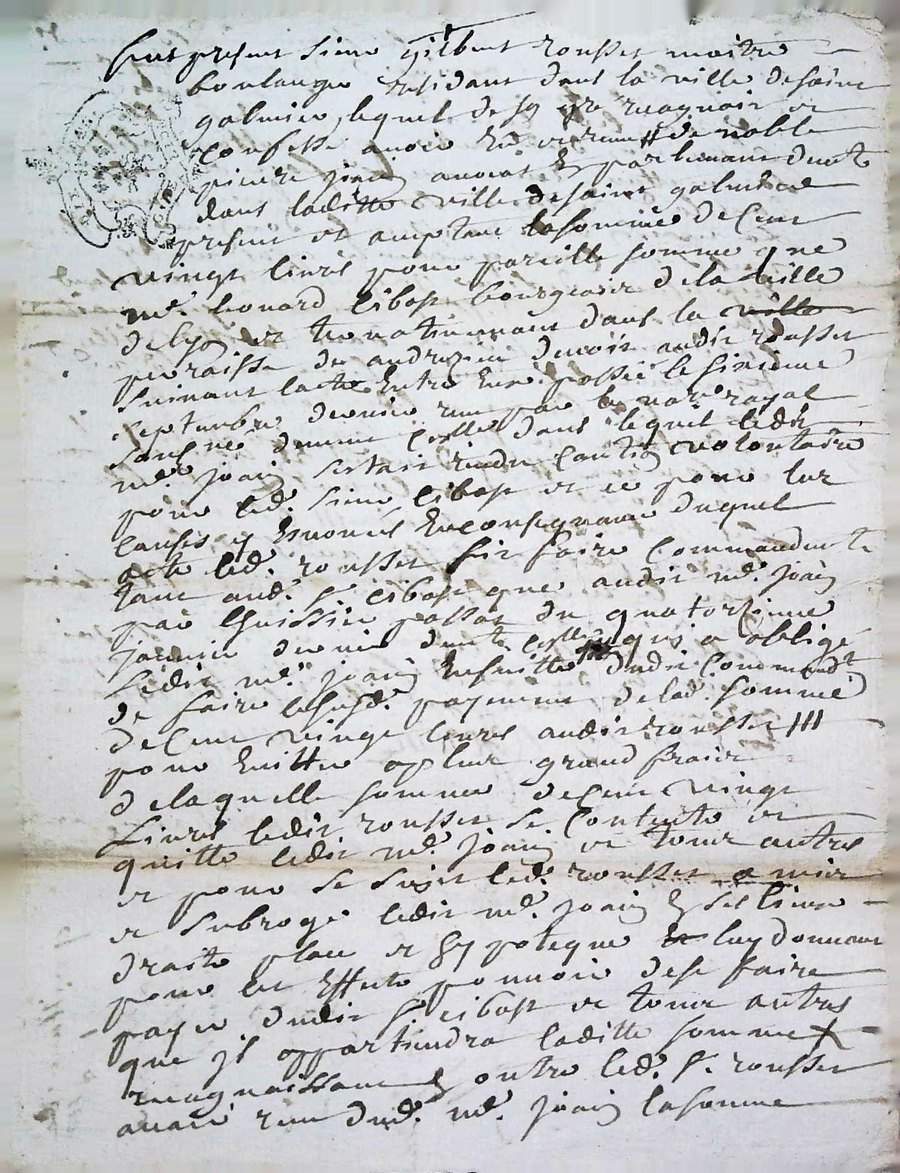 fut present sieur gilbert rousset maitre
boulanger residant dans la ville de saint
galmier, lequel de sy gre recognoit et
confesse avoir eu receu de noble
pierre joïn avocat en parlement demt
dans laditte ville de saint galmier
present et acceptant la somme de cent
vingt livres pour pareille somme que
mr. leonard cibost bourgeois de la ville
de lyon et dans la ville
parroisse de andrezieu devoit audit rousset
suivant lacte entre eux passé le sixieme
septembre dernier receu par notre royal
dans lequel ledit
mr. joïn sestoit rendu caution volontaire
pour led. sieur cibost et ce pour les
causes y enoncés en consequance duquel
acte led. rousset fit faire commandemt
tant aud. sr cibost que audit mr. joïn
par huissier du quatorzieme
janvier dernier qui a obligé
ledit mr. joïn ensuitte dudit commandt
de faire payement de lad. somme
de cent vingt livres audit rousset
pour evitter a plus grand fraix
de laquelle somme de cent vingt
livres ledit rousset se contente et
quitte ledit mr. joïn et tous autres
et pour ce sujet led. rousset a mis
et subrogé ledit mr. joïn en ses lieux
droits place et hypoteque luy donnant
pour cet effect pouvoir de se faire
payer dudit sr cibost et tous autres
que il appartiendra laditte somme
recognaissant outre led. sr. rousset
avoir receu dud. mr. joïn la somme